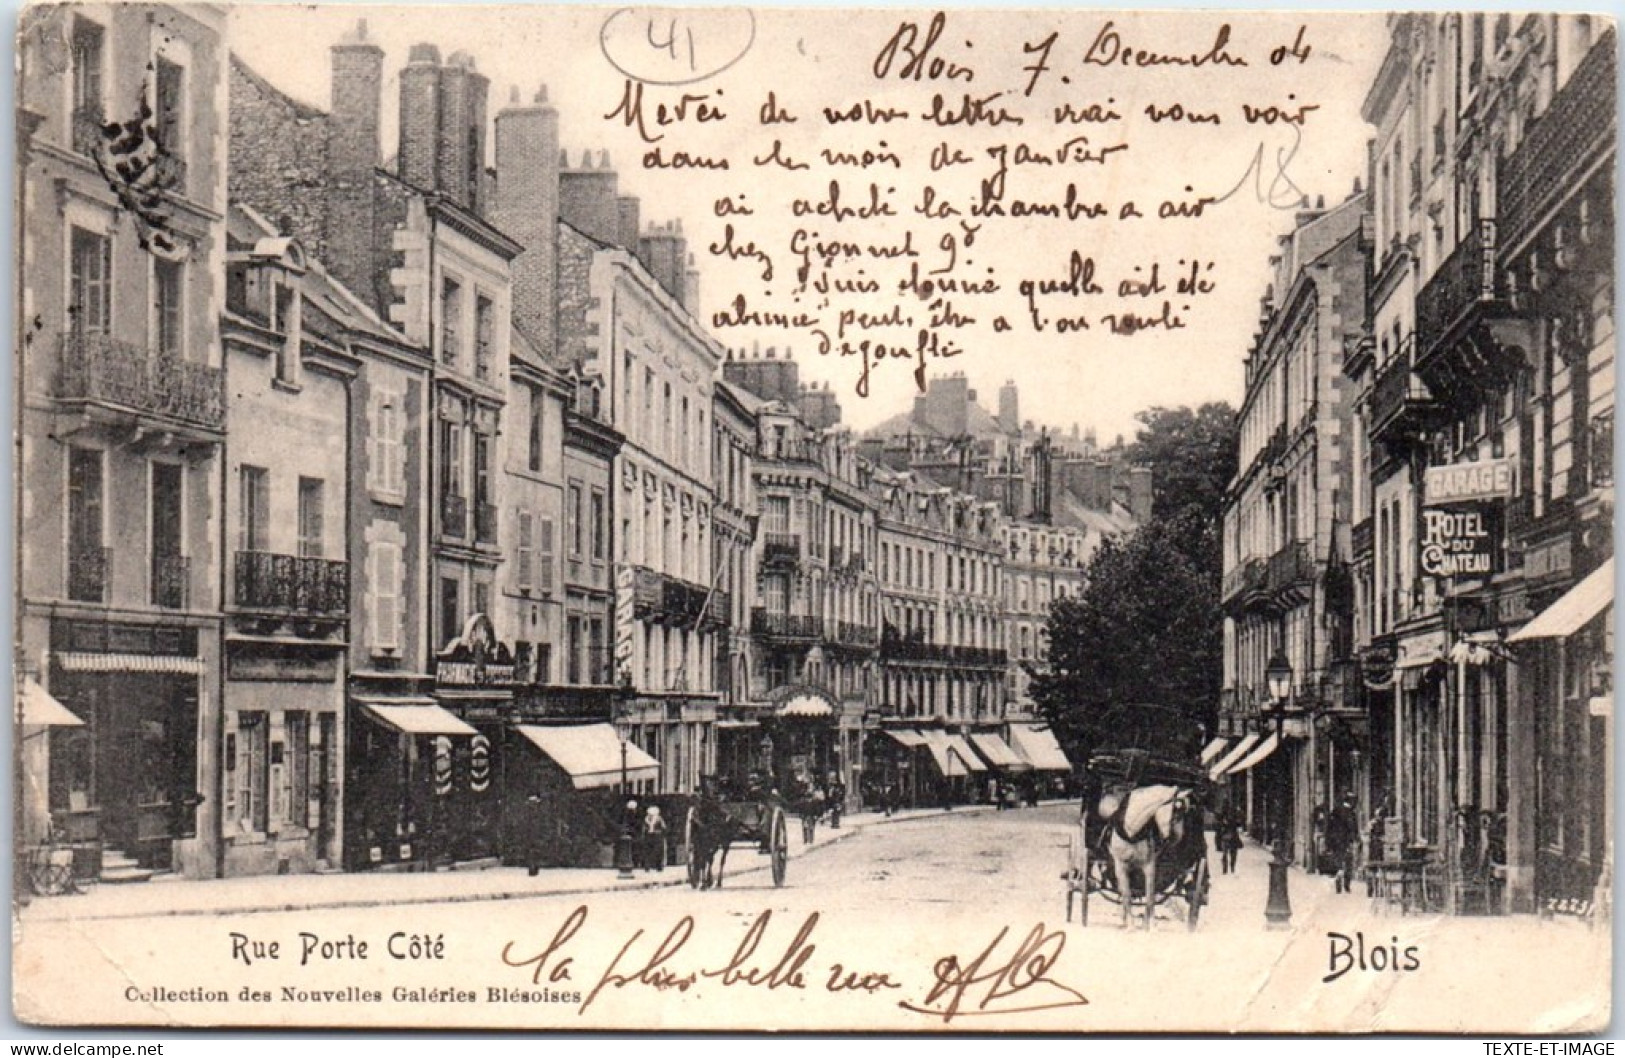 41
Blois 7 Decembre 04
Merci de votre lettre irai vous voir
dans le mois de Janvier
18
ai acheté la chambre a air
chez Gionnet 9f
Suis etonné quelle ait été
abimée peut. être a t'on roulé
degonflé
GARAGE
HOTEL
DU
CHATEAU
PHARMACIE
Rue Porte Côté
la plus belle rue
Blois
Collection des Nouvelles Galéries Blésoises
TEXTE-ET-IMAGE
www.delcampe.net